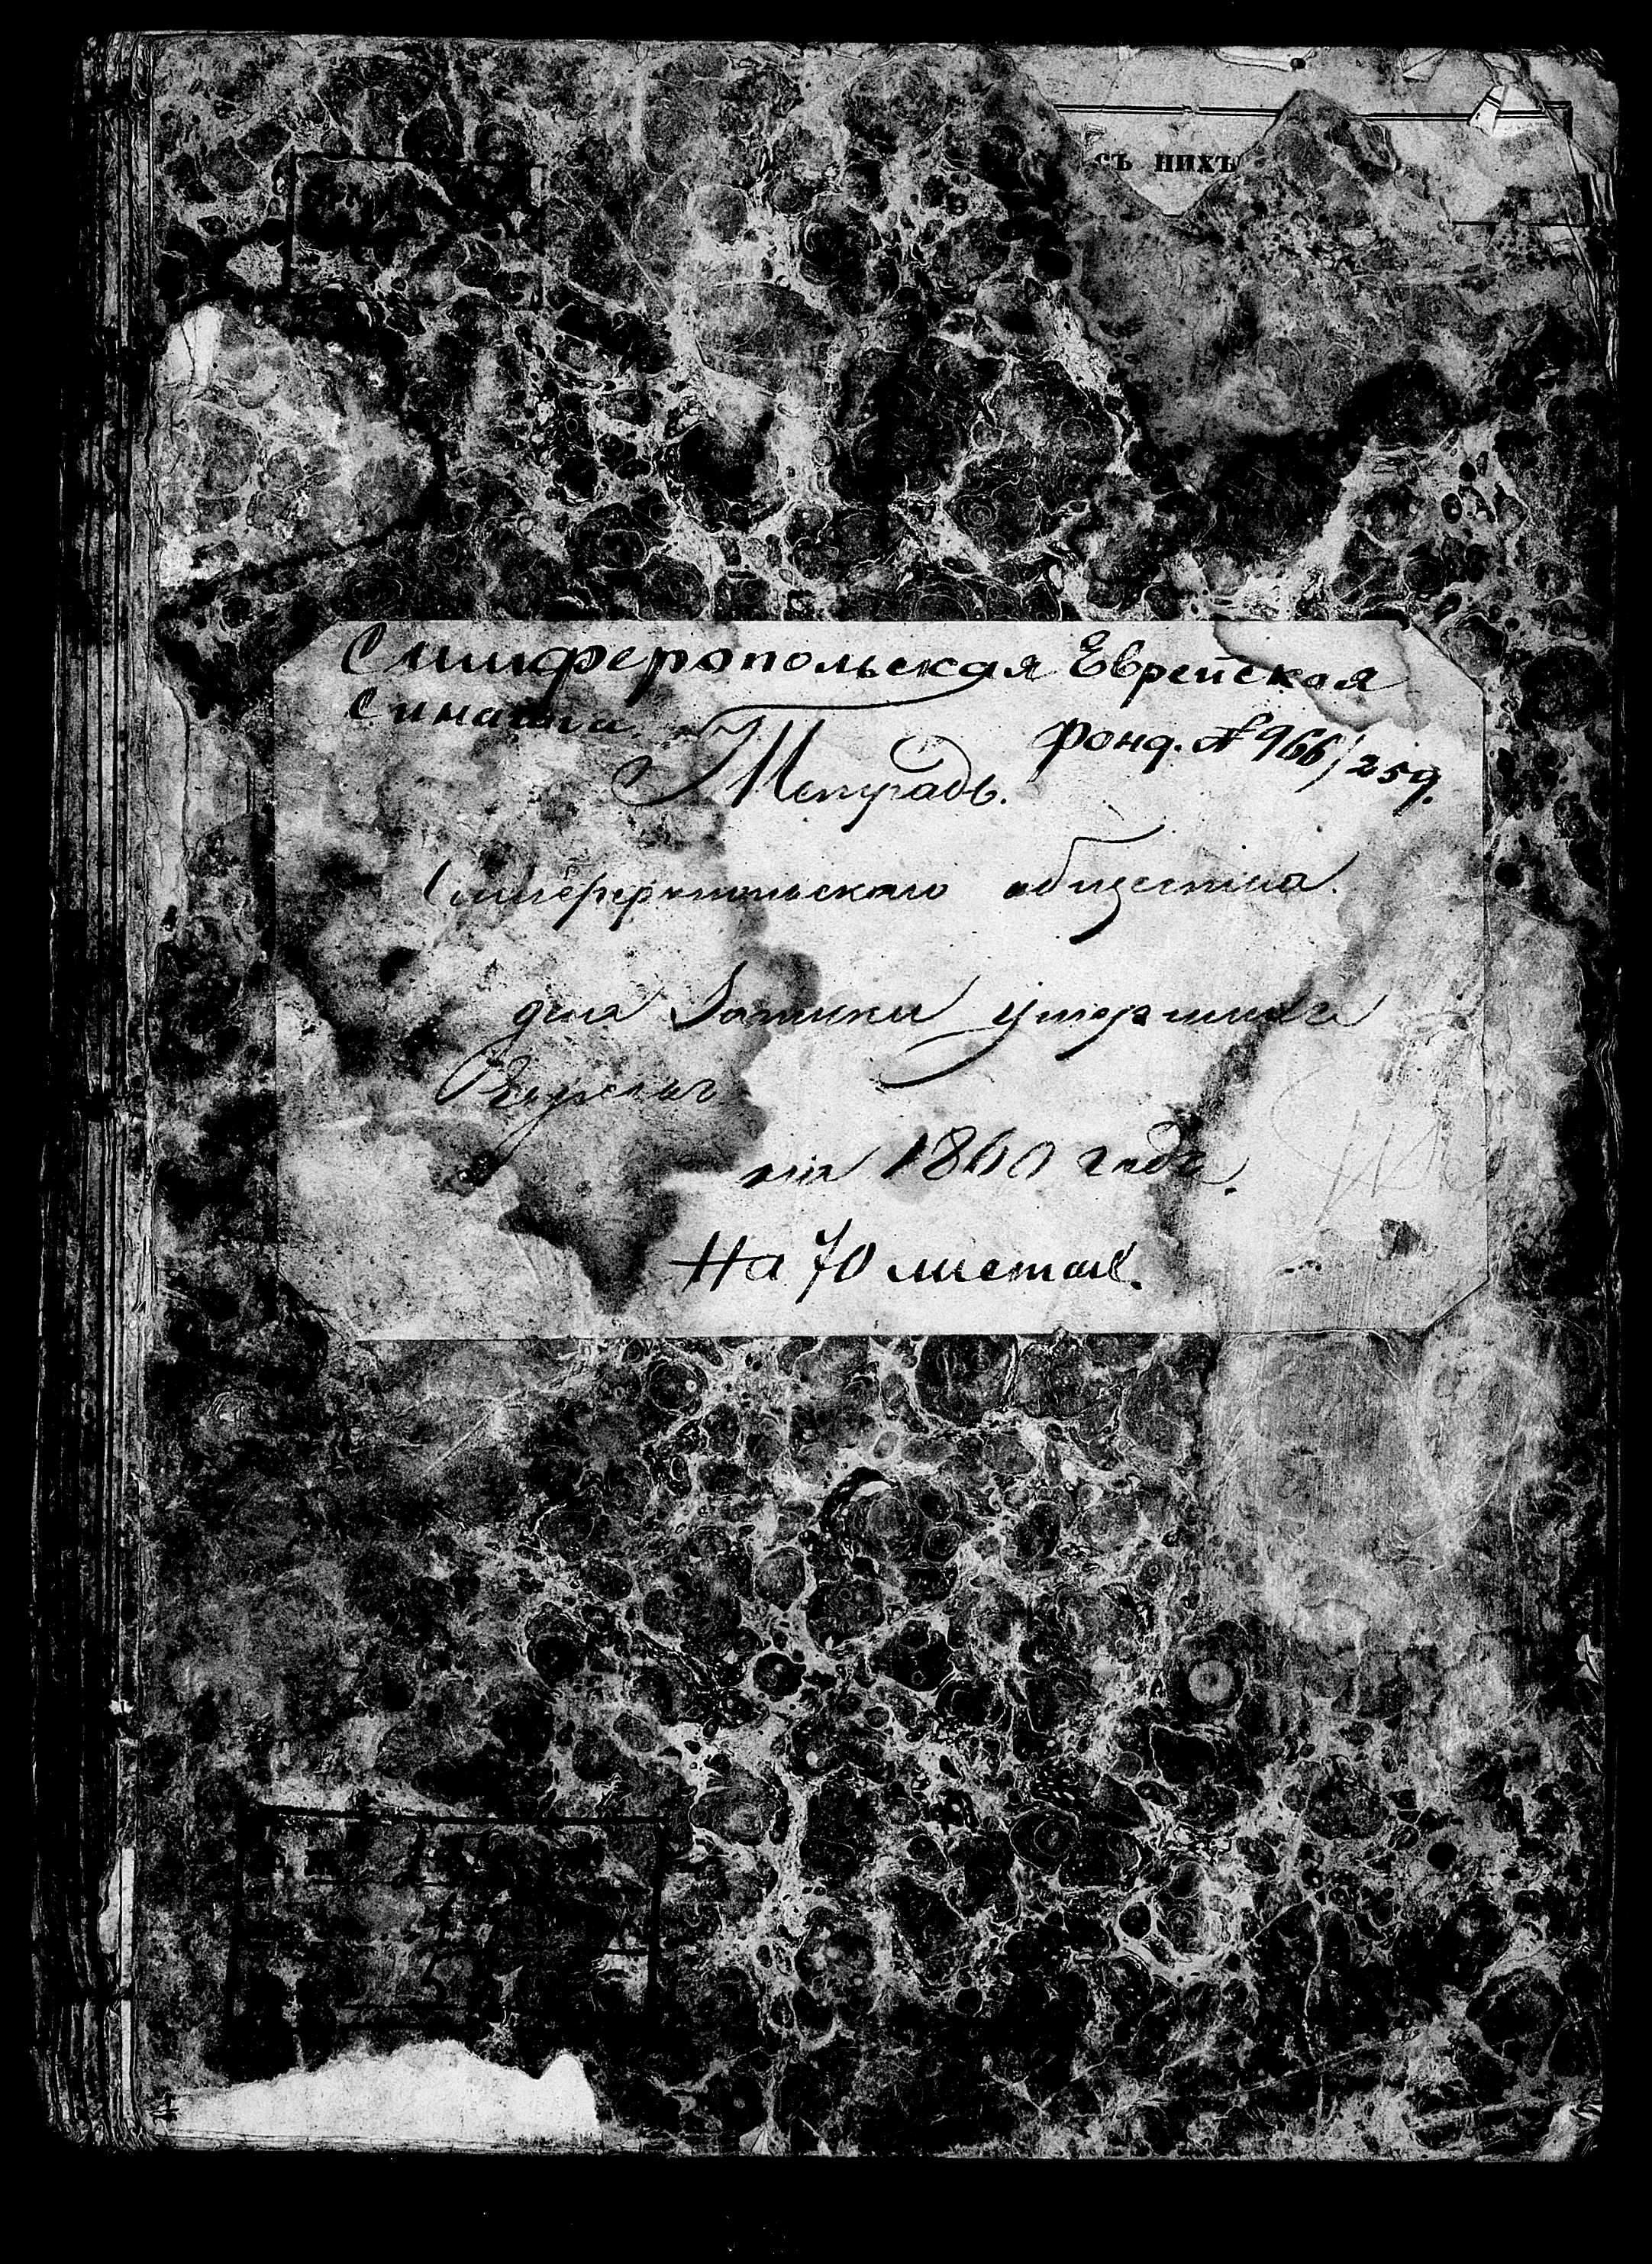 съ нихъ
Симферопольская Еврейская
Синагога.
Фонд. № 966/259.
Тетрадь.
Симферопольского общества.
для Записки умершихъ
на 1860 годъ.
На 70 листахъ.